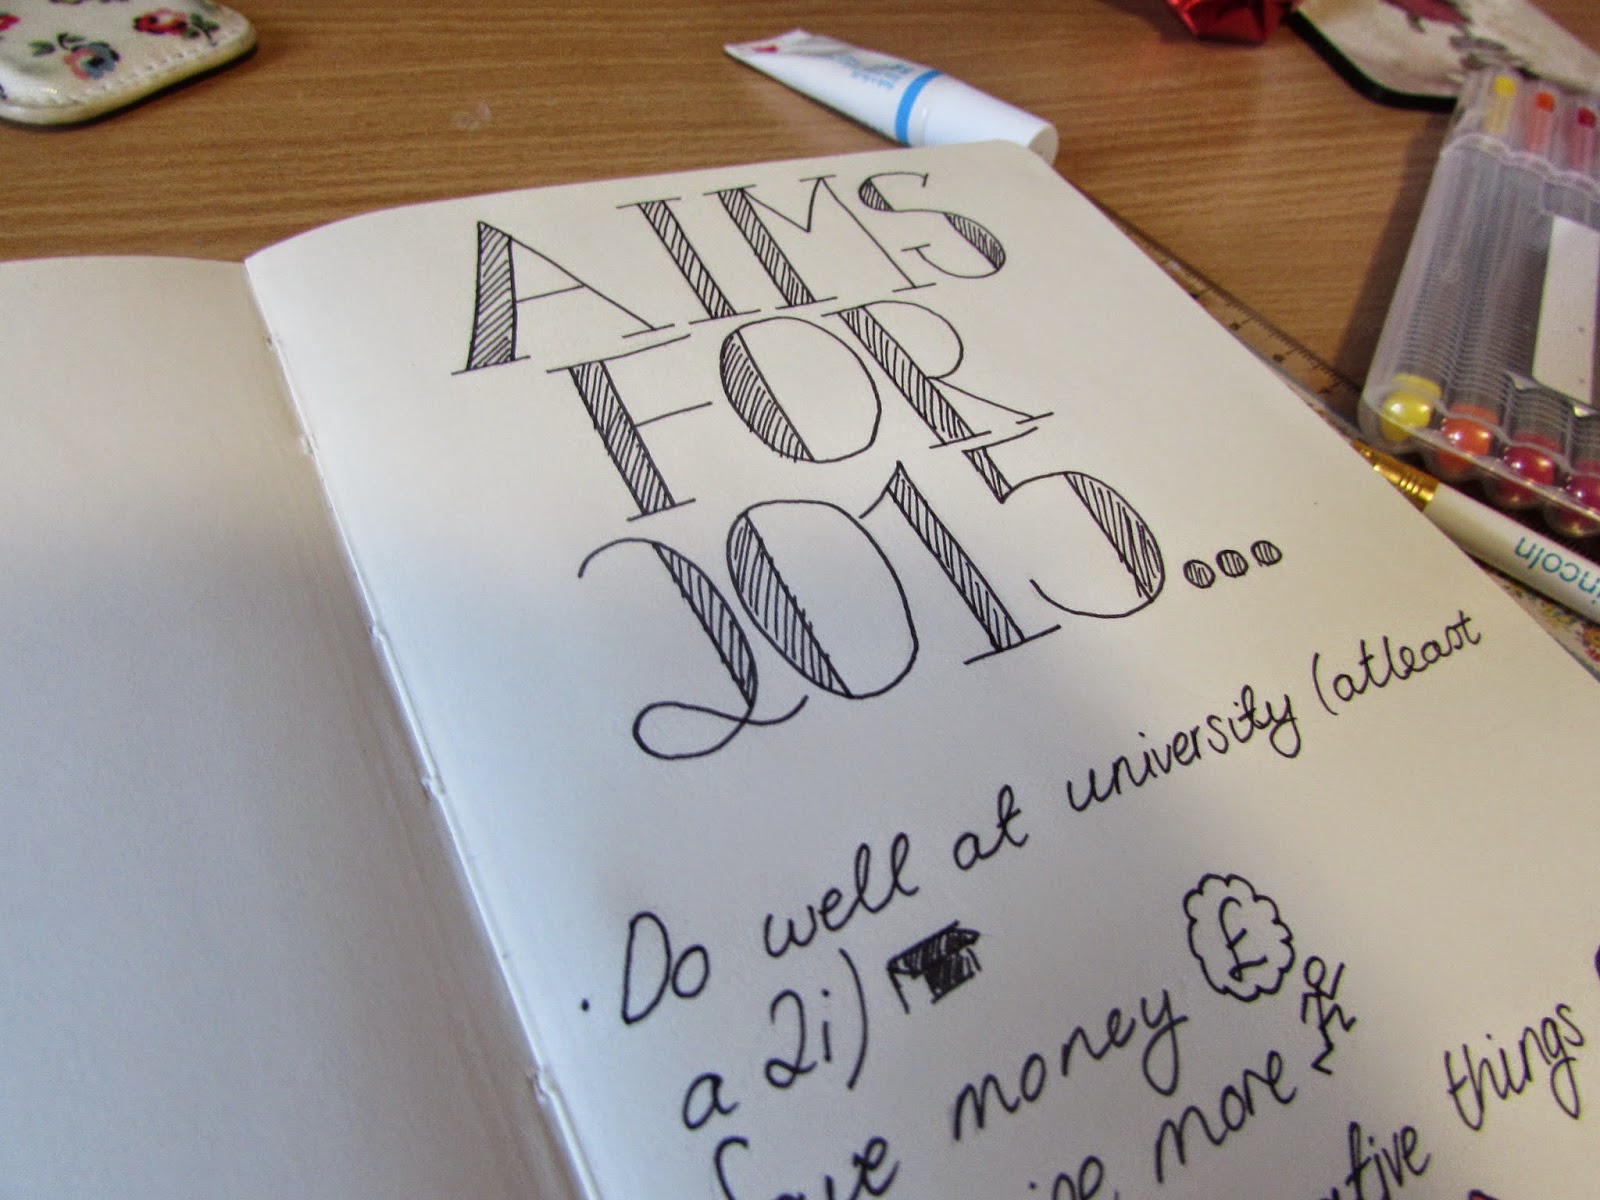 AIMS
FOR
2015...
. Do well at university (atleast
a 2i)
Save money £
more
things
incoln